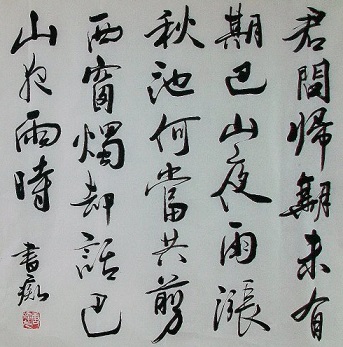 君問歸期未有
期巴山夜雨漲
秋池何當共剪
西窗燭却話巴
山夜雨時
書癡